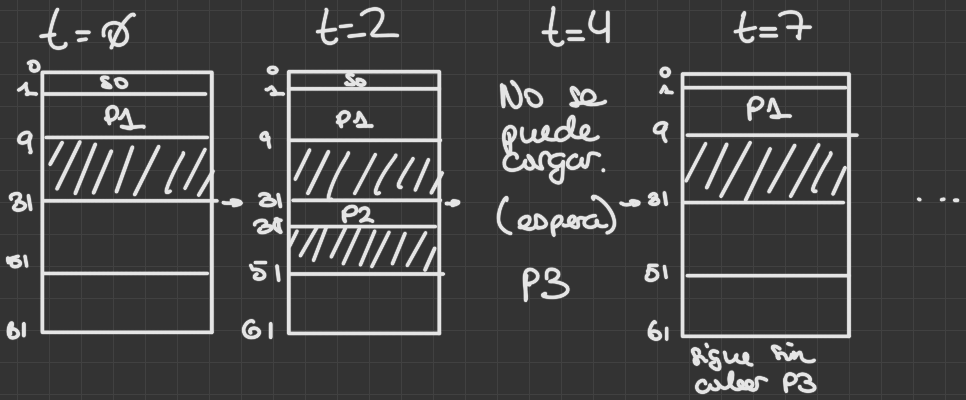 t=∅
0
SO
1
P1
9
31
51
61
t=2
0
SO
1
P1
9
31
P2
51
61
t=4
No se
puede
cargar.
(espera)
P3
t=7
0
1
P1
9
31
51
61
sigue sin
caber P3
...